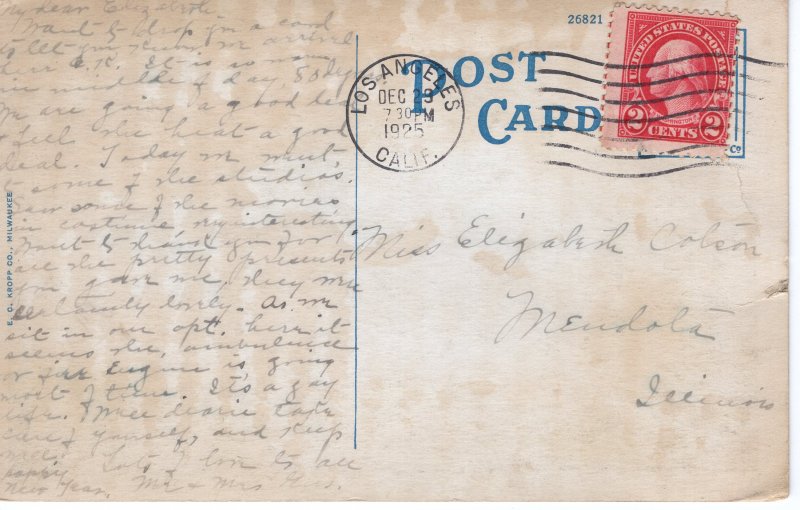 My dear Elizabeth
Want to drop you a card
to let you know we arrived
here O.K. It is so warm
in middle of day, 80 deg
We are going a good deal
+ feel the heat a good
deal. Today we went
to some of the studios.
Saw some of the movies
in costume very interesting
Want to thank you for
all the pretty presents
you gave me, they were
certainly lovely. As we
sit in our apt. here it
seems the ambulance
or fire Engine is going
most of time. Its a gay
life. Well dearie take
care of yourself, and keep
well. Lots of love to all
happy
New Year. Mr + Mrs
E. C. KROPP CO., MILWAUKEE
26821
POST
CARD
LOS ANGELES
DEC 23
7 30 PM
1925
CALIF.
UNITED STATES POSTAGE
2 CENTS 2
Co
Miss Elizabeth Colson
Mendota
Illinois